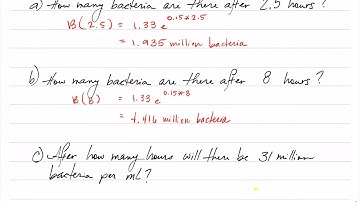 a) How many bacteria are there after 2.5 hours?
B(2.5) = 1.33 e^0.15*2.5
= 1.935 million bacteria
b) How many bacteria are there after 8 hours?
B(8) = 1.33 e^0.15*8
= 4.416 million bacteria
c) After how many hours will there be 31 million
bacteria per mL?